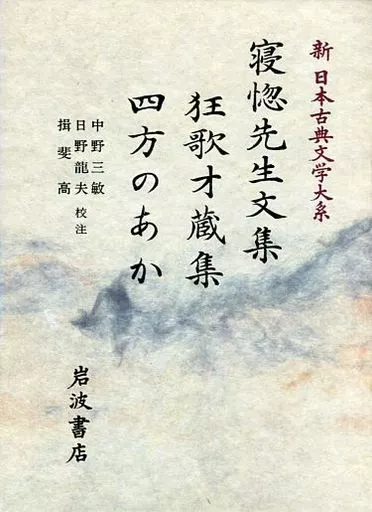 新 日本古典文学大系
寝惚先生文集
狂歌才蔵集
四方のあか
中野三敏
日野龍夫 校注
揖斐高
岩波書店